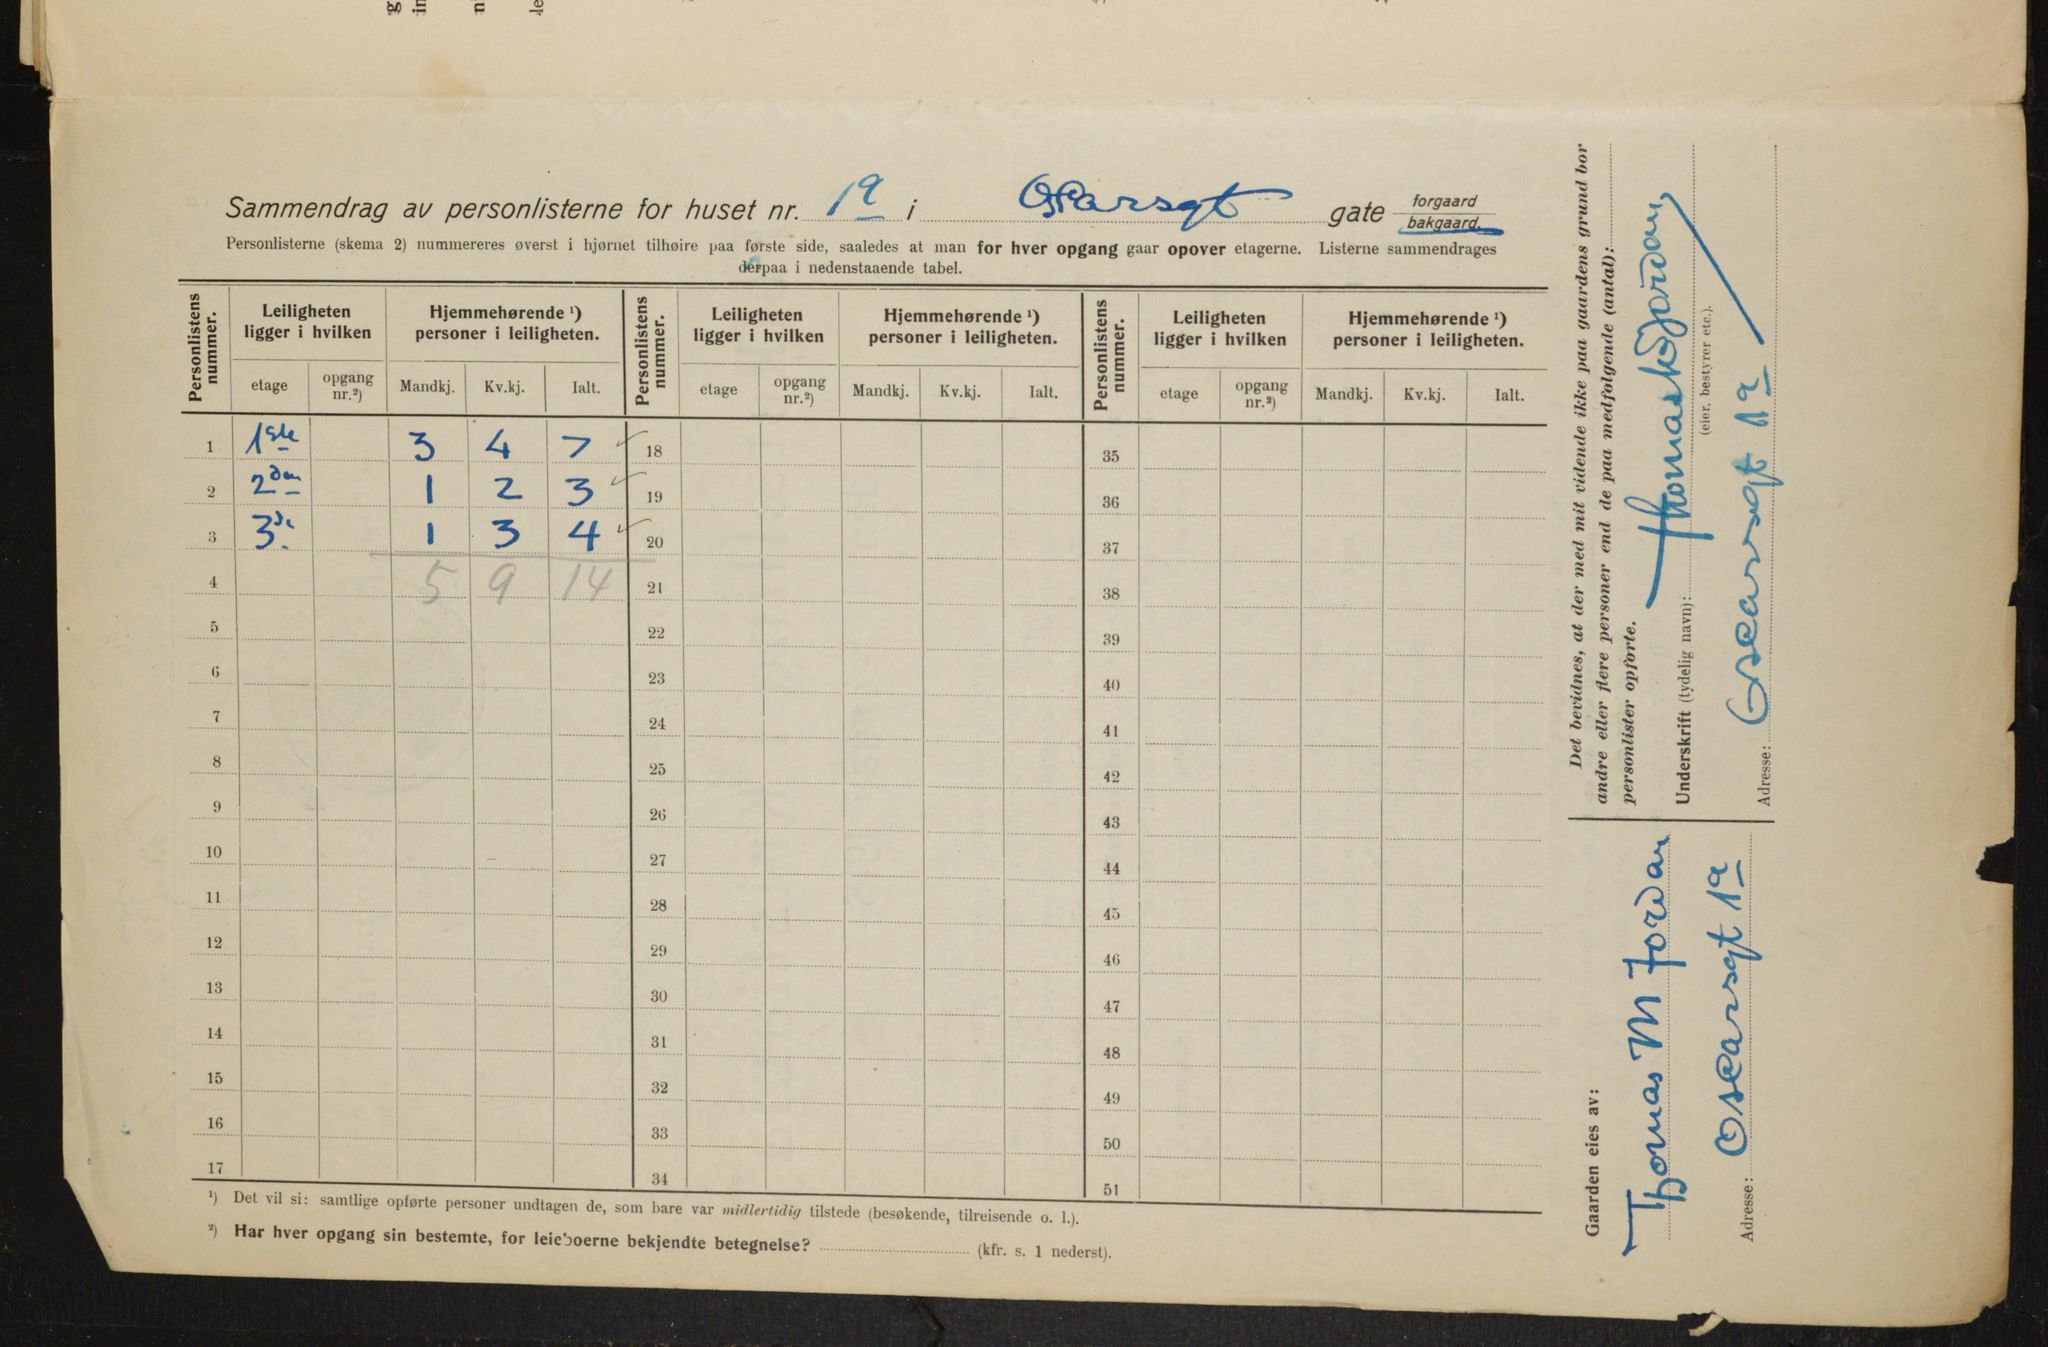 Sammendrag av personlisterne for huset nr. 1a i Oskarsgt gate forgaard bakgaard.
Personlisterne (skema 2) nummereres øverst i hjørnet tilhøire paa første side, saaledes at man for hver opgang gaar opover etagerne. Listerne sammendrages
derpaa i nedenstaaende tabel.
Personlistens nummer. Leiligheten ligger i hvilken Hjemmehørende ¹) personer i leiligheten. Personlistens nummer. Leiligheten ligger i hvilken Hjemmehørende ¹) personer i leiligheten. Personlistens nummer. Leiligheten ligger i hvilken Hjemmehørende ¹) personer i leiligheten.
etage opgang nr.²) Mandkj. Kv.kj. Ialt. etage opgang nr.²) Mandkj. Kv.kj. Ialt. etage opgang nr.²) Mandkj. Kv.kj. Ialt.
1 1ste 3 4 7 ✓ 18 35
2 2den 1 2 3 ✓ 19 36
3 3de 1 3 4 ✓ 20 37
4 5 9 14 21 38
5 22 39
6 23 40
7 24 41
8 25 42
9 26 43
10 27 44
11 28 45
12 29 46
13 30 47
14 31 48
15 32 49
16 33 50
17 34 51
¹) Det vil si: samtlige opførte personer undtagen de, som bare var midlertidig tilstede (besøkende, tilreisende o. l.).
²) Har hver opgang sin bestemte, for leieboerne bekjendte betegnelse? (kfr. s. 1 nederst).
Det bevidnes, at der med mit vidende ikke paa gaardens grund bor
andre eller flere personer end de paa medfølgende (antal):
personlister opførte.
Underskrift (tydelig navn): Thomas M Jordan
(eier, bestyrer etc.).
Adresse: Oscarsgt 1a
Gaarden eies av:
Thomas M Jordan
Adresse: Oscarsgt 1a